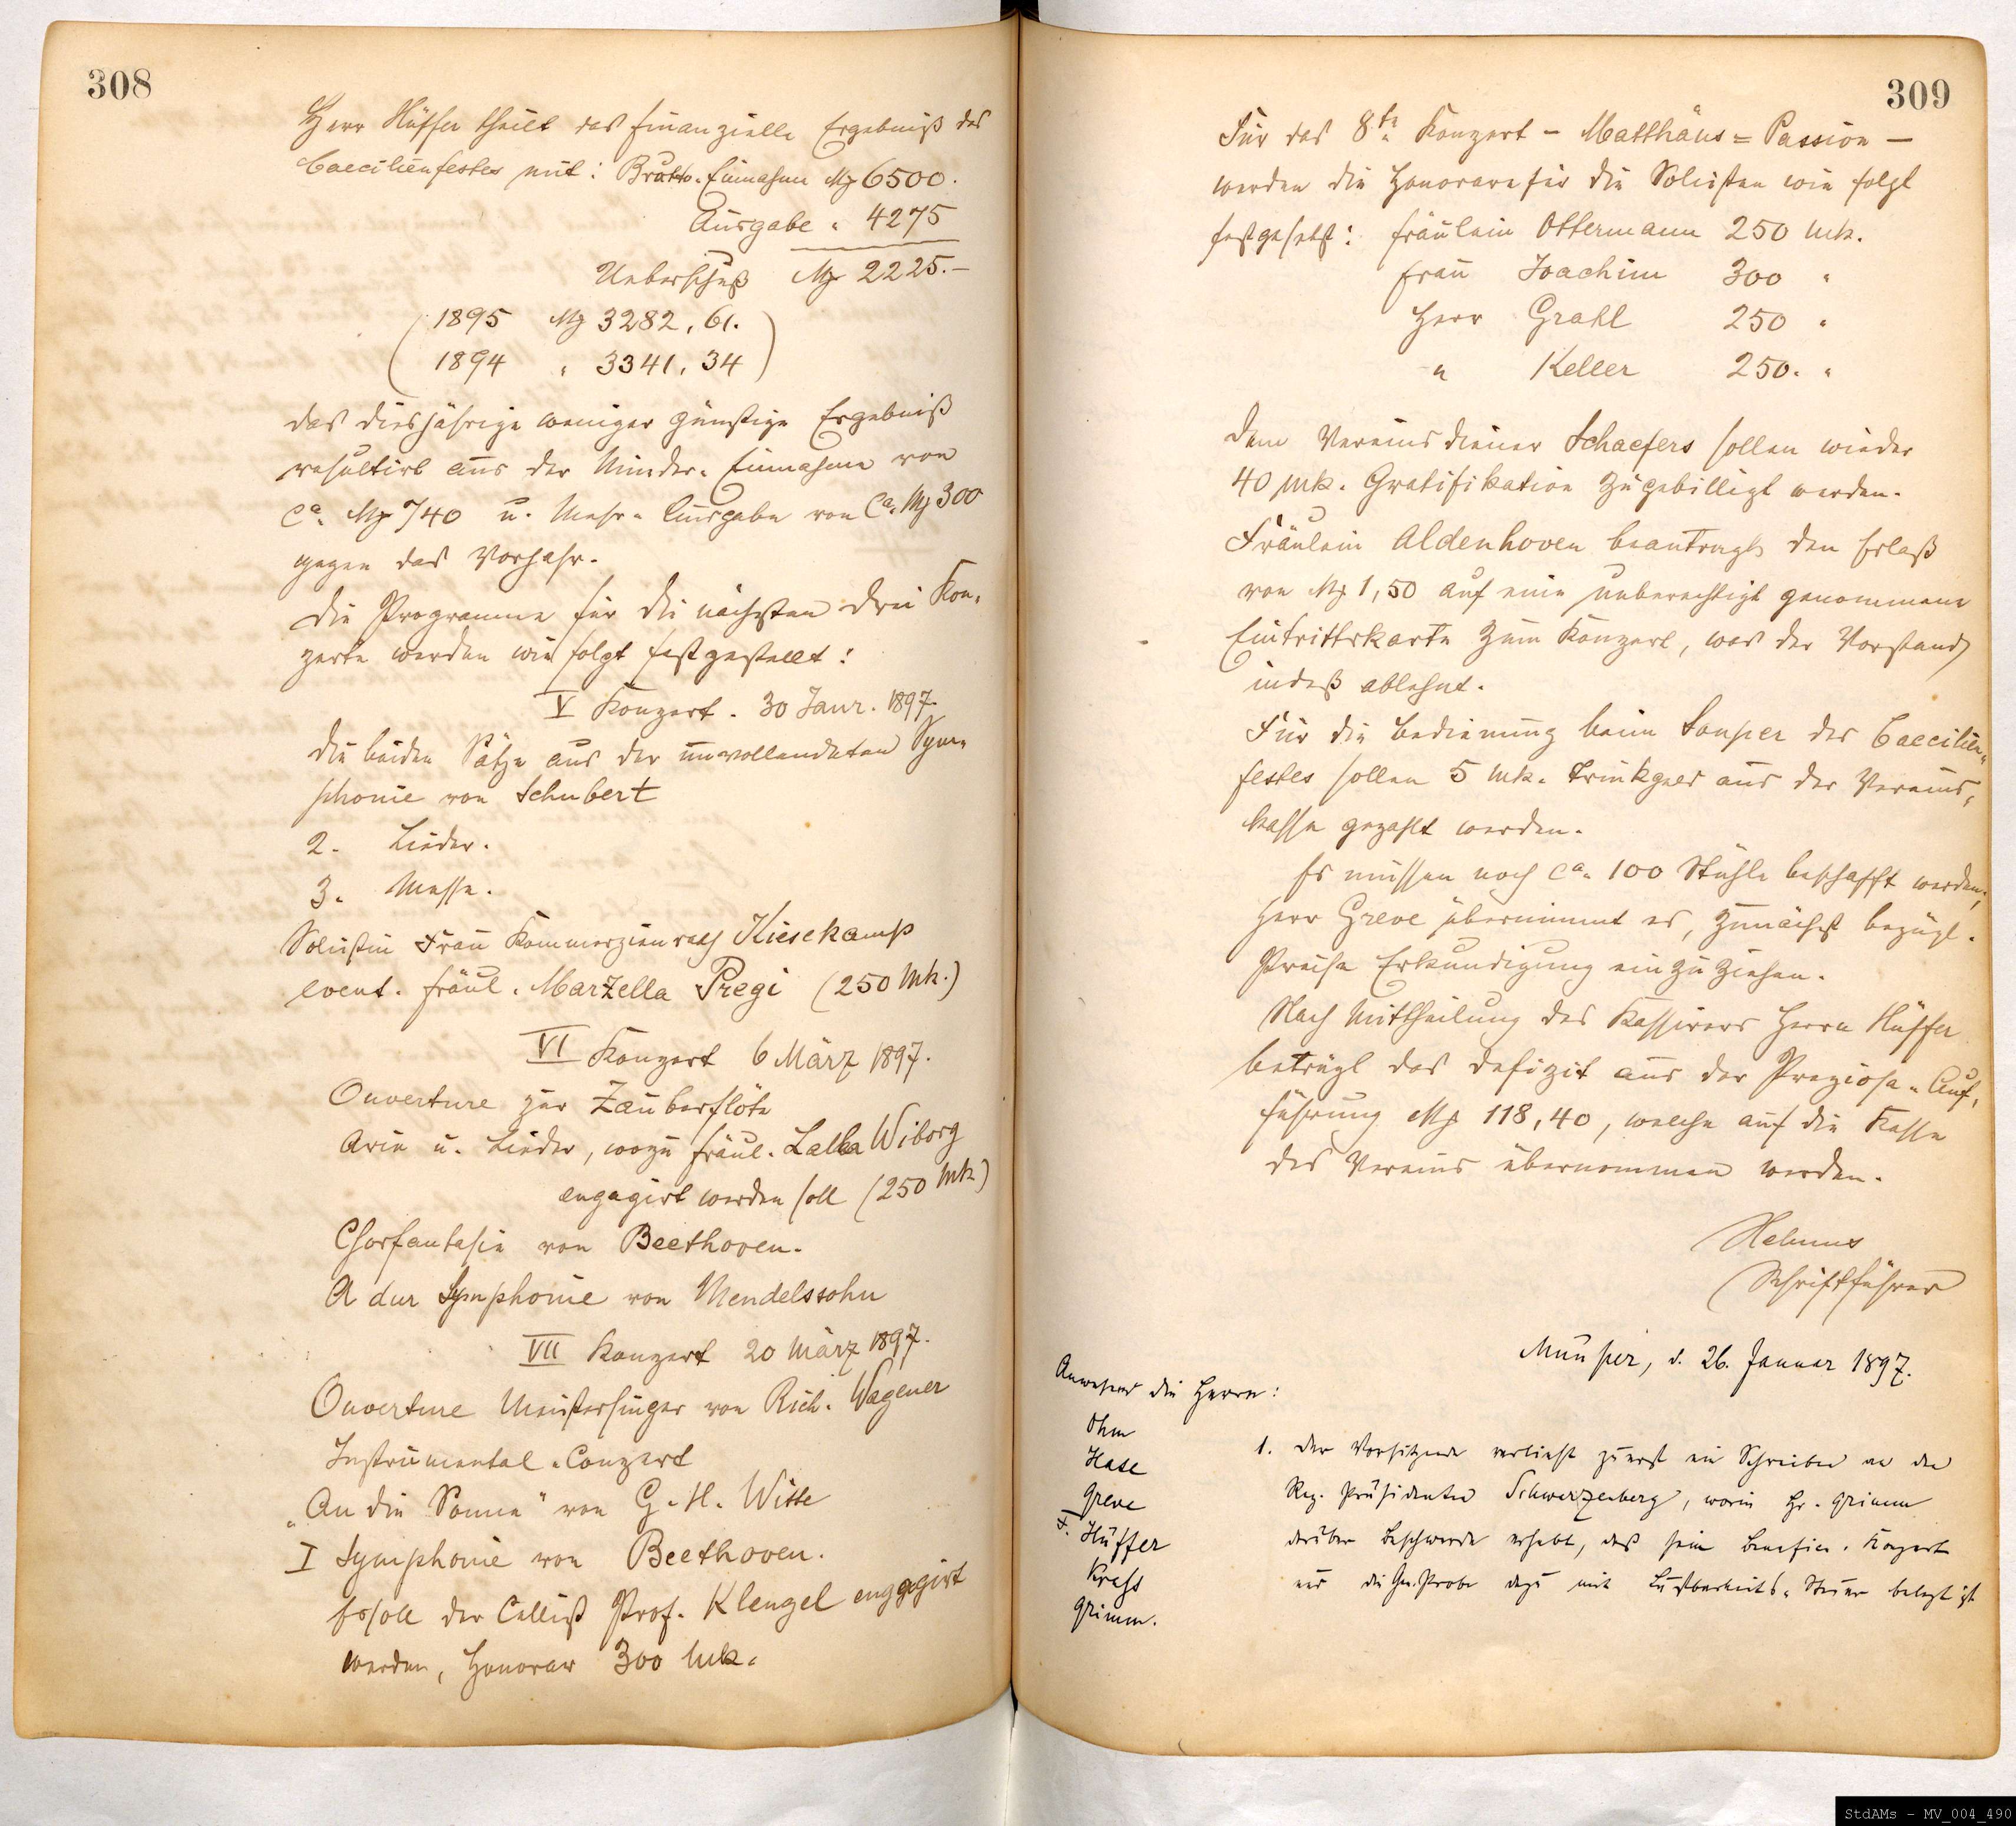 308
Herr Hüffer theilt das finanzielle Ergebniß des
Caecilienfestes mit: Brutto-Einnahme Mk 6500.
Ausgabe " 4275
Ueberschuß Mk 2225.—
(1895 Mk 3282,61.
1894 " 3341,34)
das diesjährige weniger günstige Ergebniß
resultirt aus der Minder-Einnahme von
ca. Mk 740 u. Mehr-Ausgabe von ca. Mk 300
gegen das Vorjahr.
Die Programme für die nächsten drei Kon-
zerte werden wie folgt festgestellt:
V Konzert. 30 Janr. 1897.
die beiden Sätze aus der unvollendeten Sym-
phonie von Schubert
2. Lieder.
3. Messe.
Solistin Frau Kommerzienrath Kiesekamp
event. Fräul. Marzella Pregi (250 Mk.)
VI Konzert 6 März 1897.
Ouverture zur Zauberflöte
Arie u. Lieder, wozu Fräul. Lalla Wiborg
engagirt werden soll (250 Mk)
Chorfantasie von Beethoven.
A dur Symphonie von Mendelssohn
VII Konzert 20 März 1897.
Ouverture Meistersinger von Rich. Wagener
Instrumental-Conzert
„An die Sonne" von G. H. Witte
I Symphonie von Beethoven.
Es soll der Cellist Prof. Klengel engagirt
werden, Honorar 300 Mk.
309
Für das 8te Konzert – Matthäus=Passion –
werden die Honorare für die Solisten wie folgt
festgesetzt: Fräulein Ottermann 250 Mk.
Frau Joachim 300 "
Herr Grahl 250 "
" Keller 250. "
Dem Vereinsdiener Schaefers sollen wieder
40 Mk. Gratifikation zugebilligt werden.
Fräulein Aldenhoven beantragt den Erlaß
von Mk 1,50 auf eine unberechtigt genommene
Eintrittskarte zum Konzert, was der Vorstand
indeß ablehnt.
Für die Bedienung beim Souper des Caecilien-
festes sollen 5 Mk. Trinkgeld aus der Vereins-
kasse gezahlt werden.
Es müssen noch ca. 100 Stühle beschafft werden;
Herr Greve übernimmt es, zunächst bezügl.
Preise Erkundigung einzuziehen.
Nach Mittheilung des Kassirers Herrn Hüffer
beträgt das Defizit aus der Preziosa-Auf-
führung Mk 118,40, welche auf die Kasse
des Vereins übernommen werden.
Schriftführer
Münster, d. 26. Januar 1897.
Anwesend die Herrn:
Ohm
Hase
Greve
F. Hüffer
Krass
Grimm.
1. Der Vorsitzende verliest zuerst ein Schreiben an den
Reg. Präsidenten Schwarzenberg, worin Hr. Grimm
darüber Beschwerde erhebt, daß sein Benefiz-Konzert
und die Gen. Probe dazu mit Lustbarkeits-Steuer belegt ist
StdAMs - MV_004_490